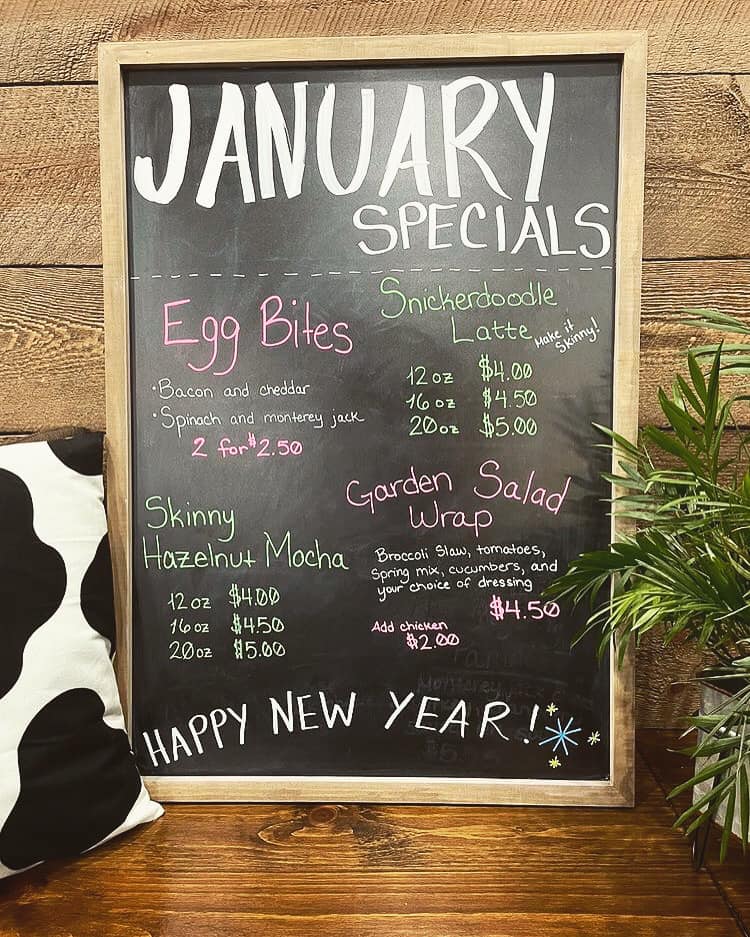 JANUARY
SPECIALS
Egg Bites
•Bacon and cheddar
•Spinach and monterey jack
2 for $2.50
Snickerdoodle
Latte
Make it
Skinny!
12 oz $4.00
16 oz $4.50
20 oz $5.00
Skinny
Hazelnut Mocha
12 oz $4.00
16 oz $4.50
20 oz $5.00
Garden Salad
Wrap
Broccoli Slaw, tomatoes,
Spring mix, cucumbers, and
your choice of dressing
$4.50
Add chicken
$2.00
HAPPY NEW YEAR!